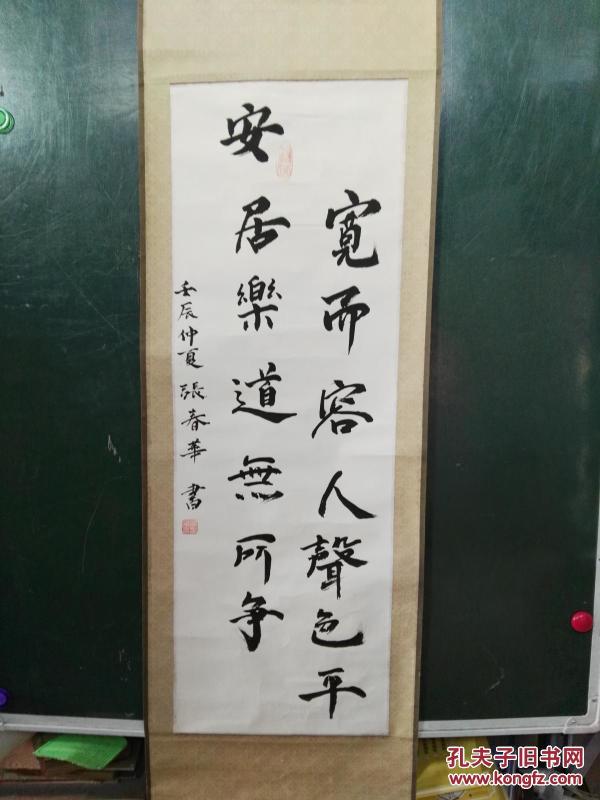 寬而容人聲色平
安居樂道無所争
壬辰仲夏張春華書
孔夫子旧书网
www.kongfz.com